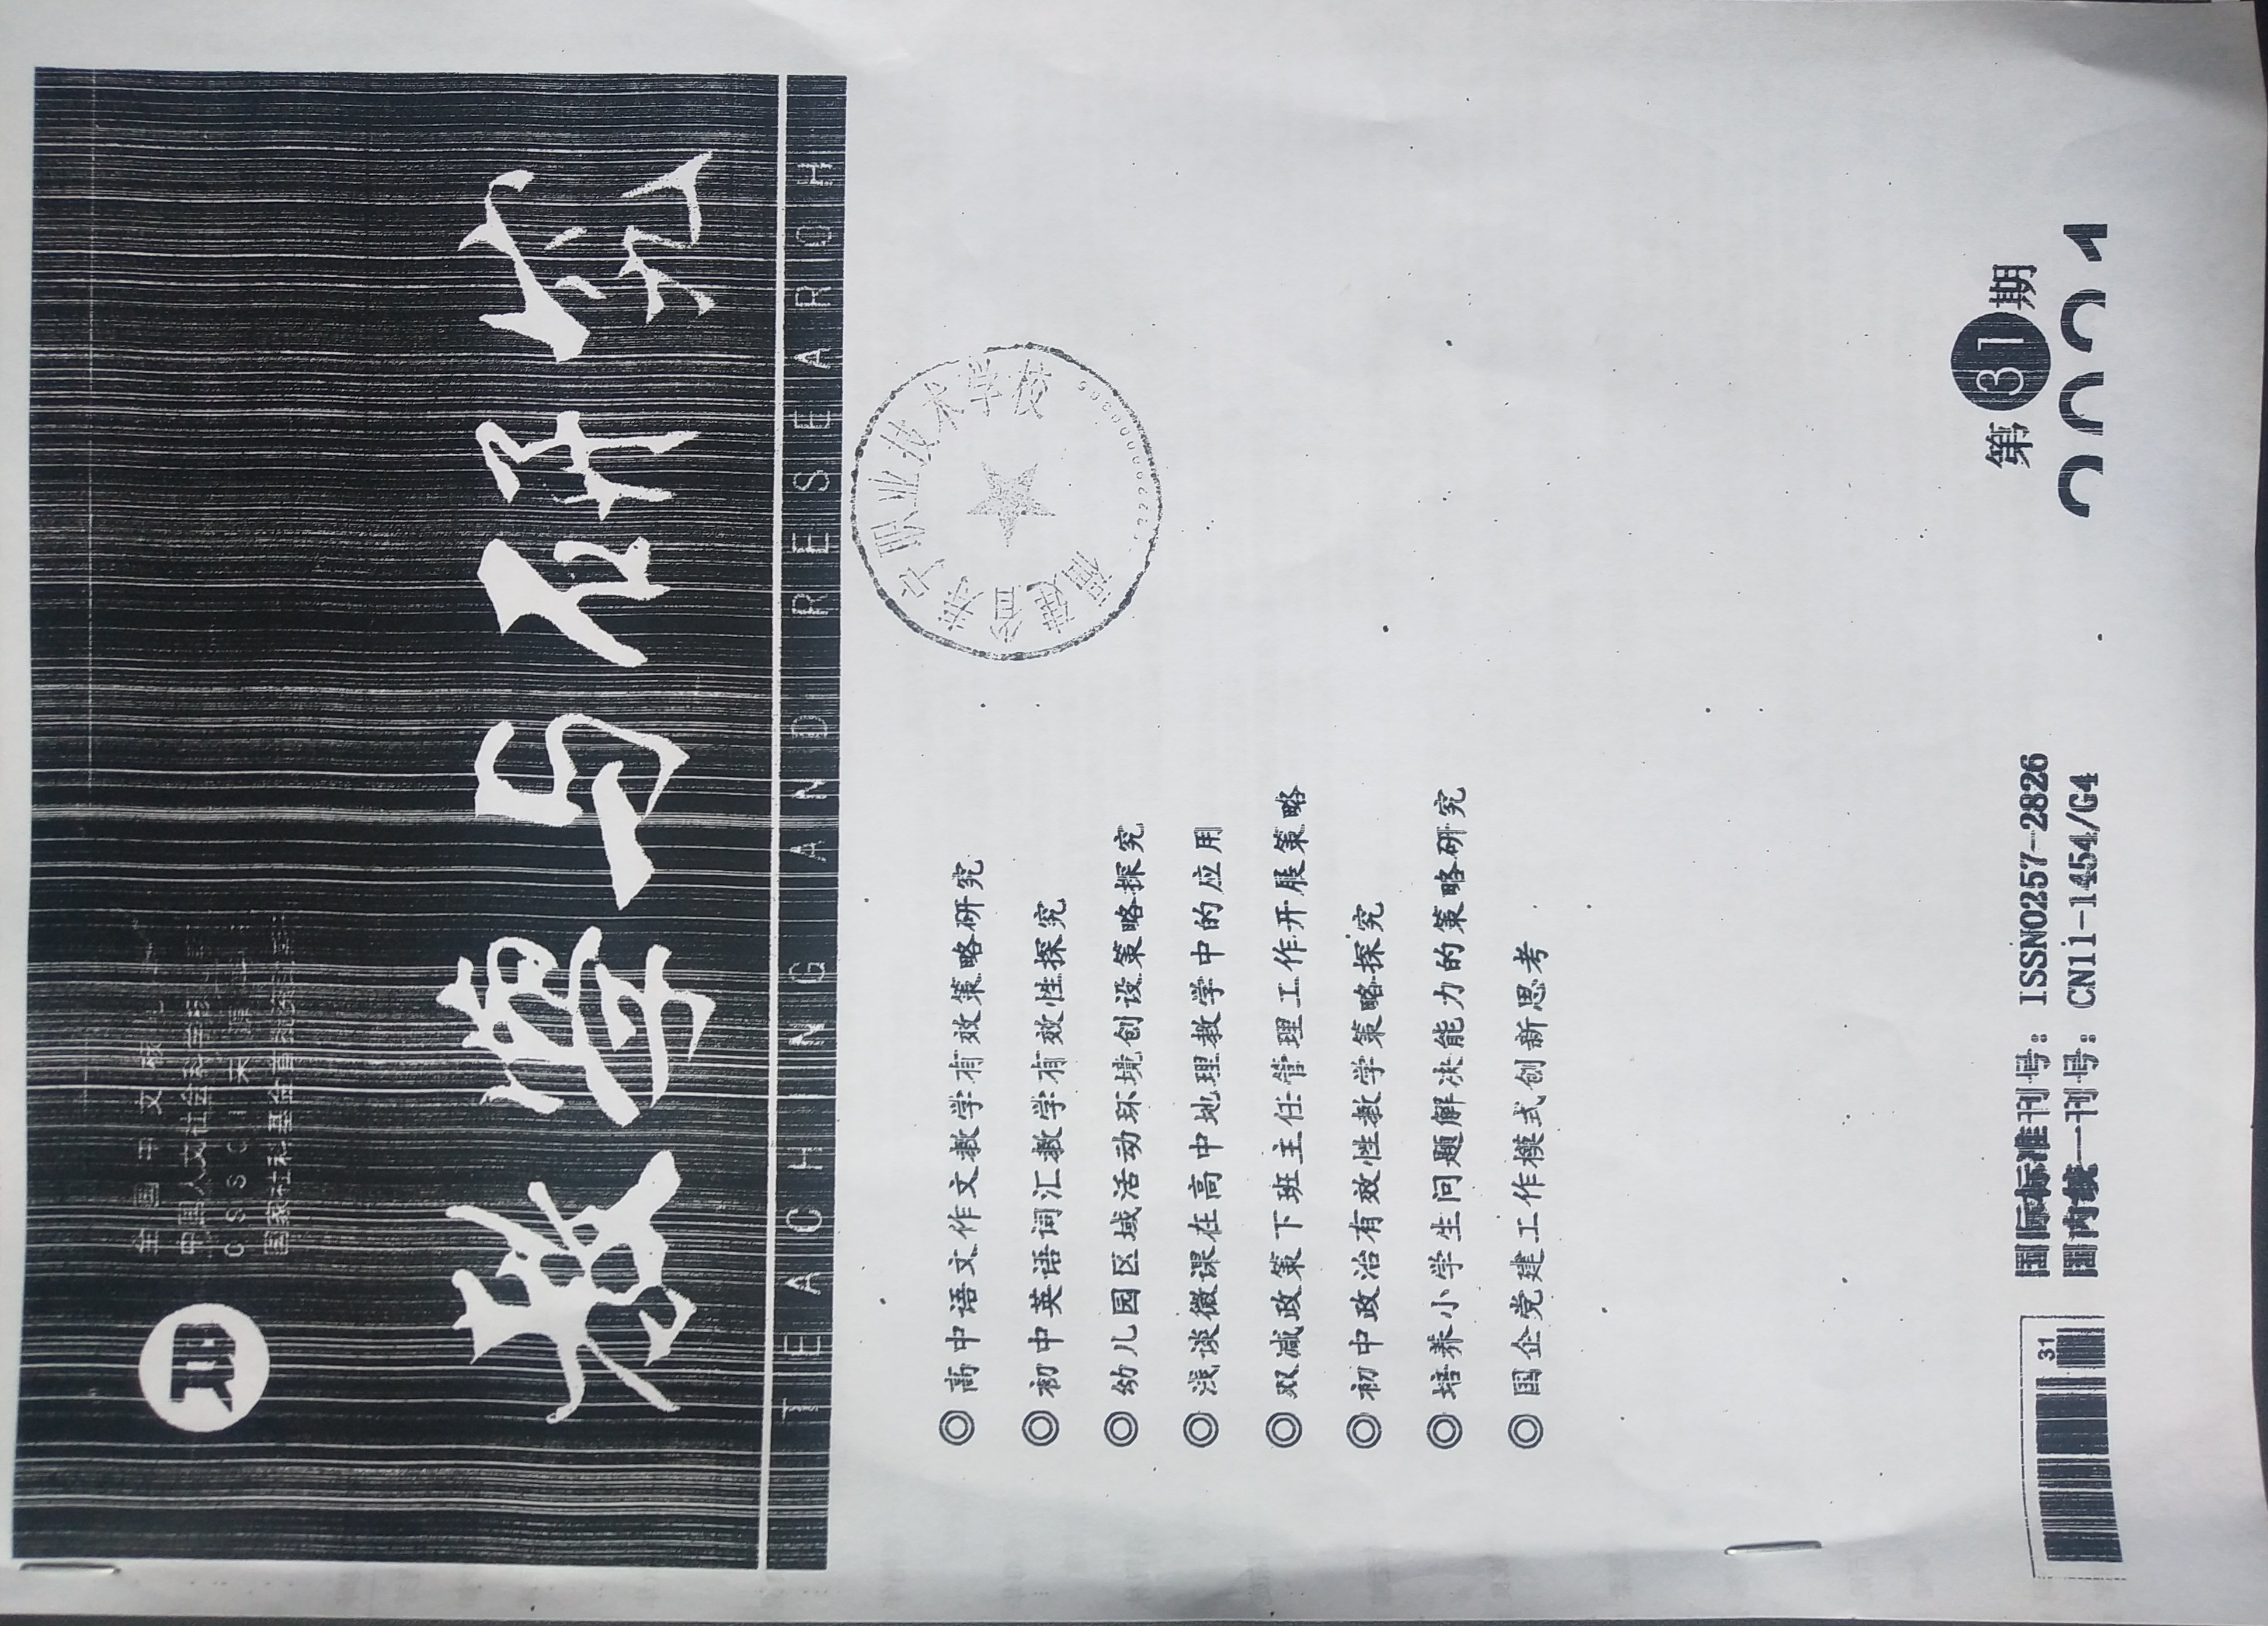 全国中文核
中国人文社会科学核
CSSCI来源
国家社科基金首批资
教学与研究
TEACHING AND RESEARCH
福建省寿宁职业技术学校
◎ 高中语文作文教学有效策略研究
◎ 初中英语词汇教学有效性探究
◎ 幼儿园区域活动环境创设策略探究
◎ 浅谈微课在高中地理教学中的应用
◎ 双减政策下班主任管理工作开展策略
◎ 初中政治有效性教学策略探究
◎ 培养小学生问题解决能力的策略研究
◎ 国企党建工作模式创新思考
31
国际标准刊号: ISSN0257-2826
国内统一刊号: CN11-1454/G4
第31期